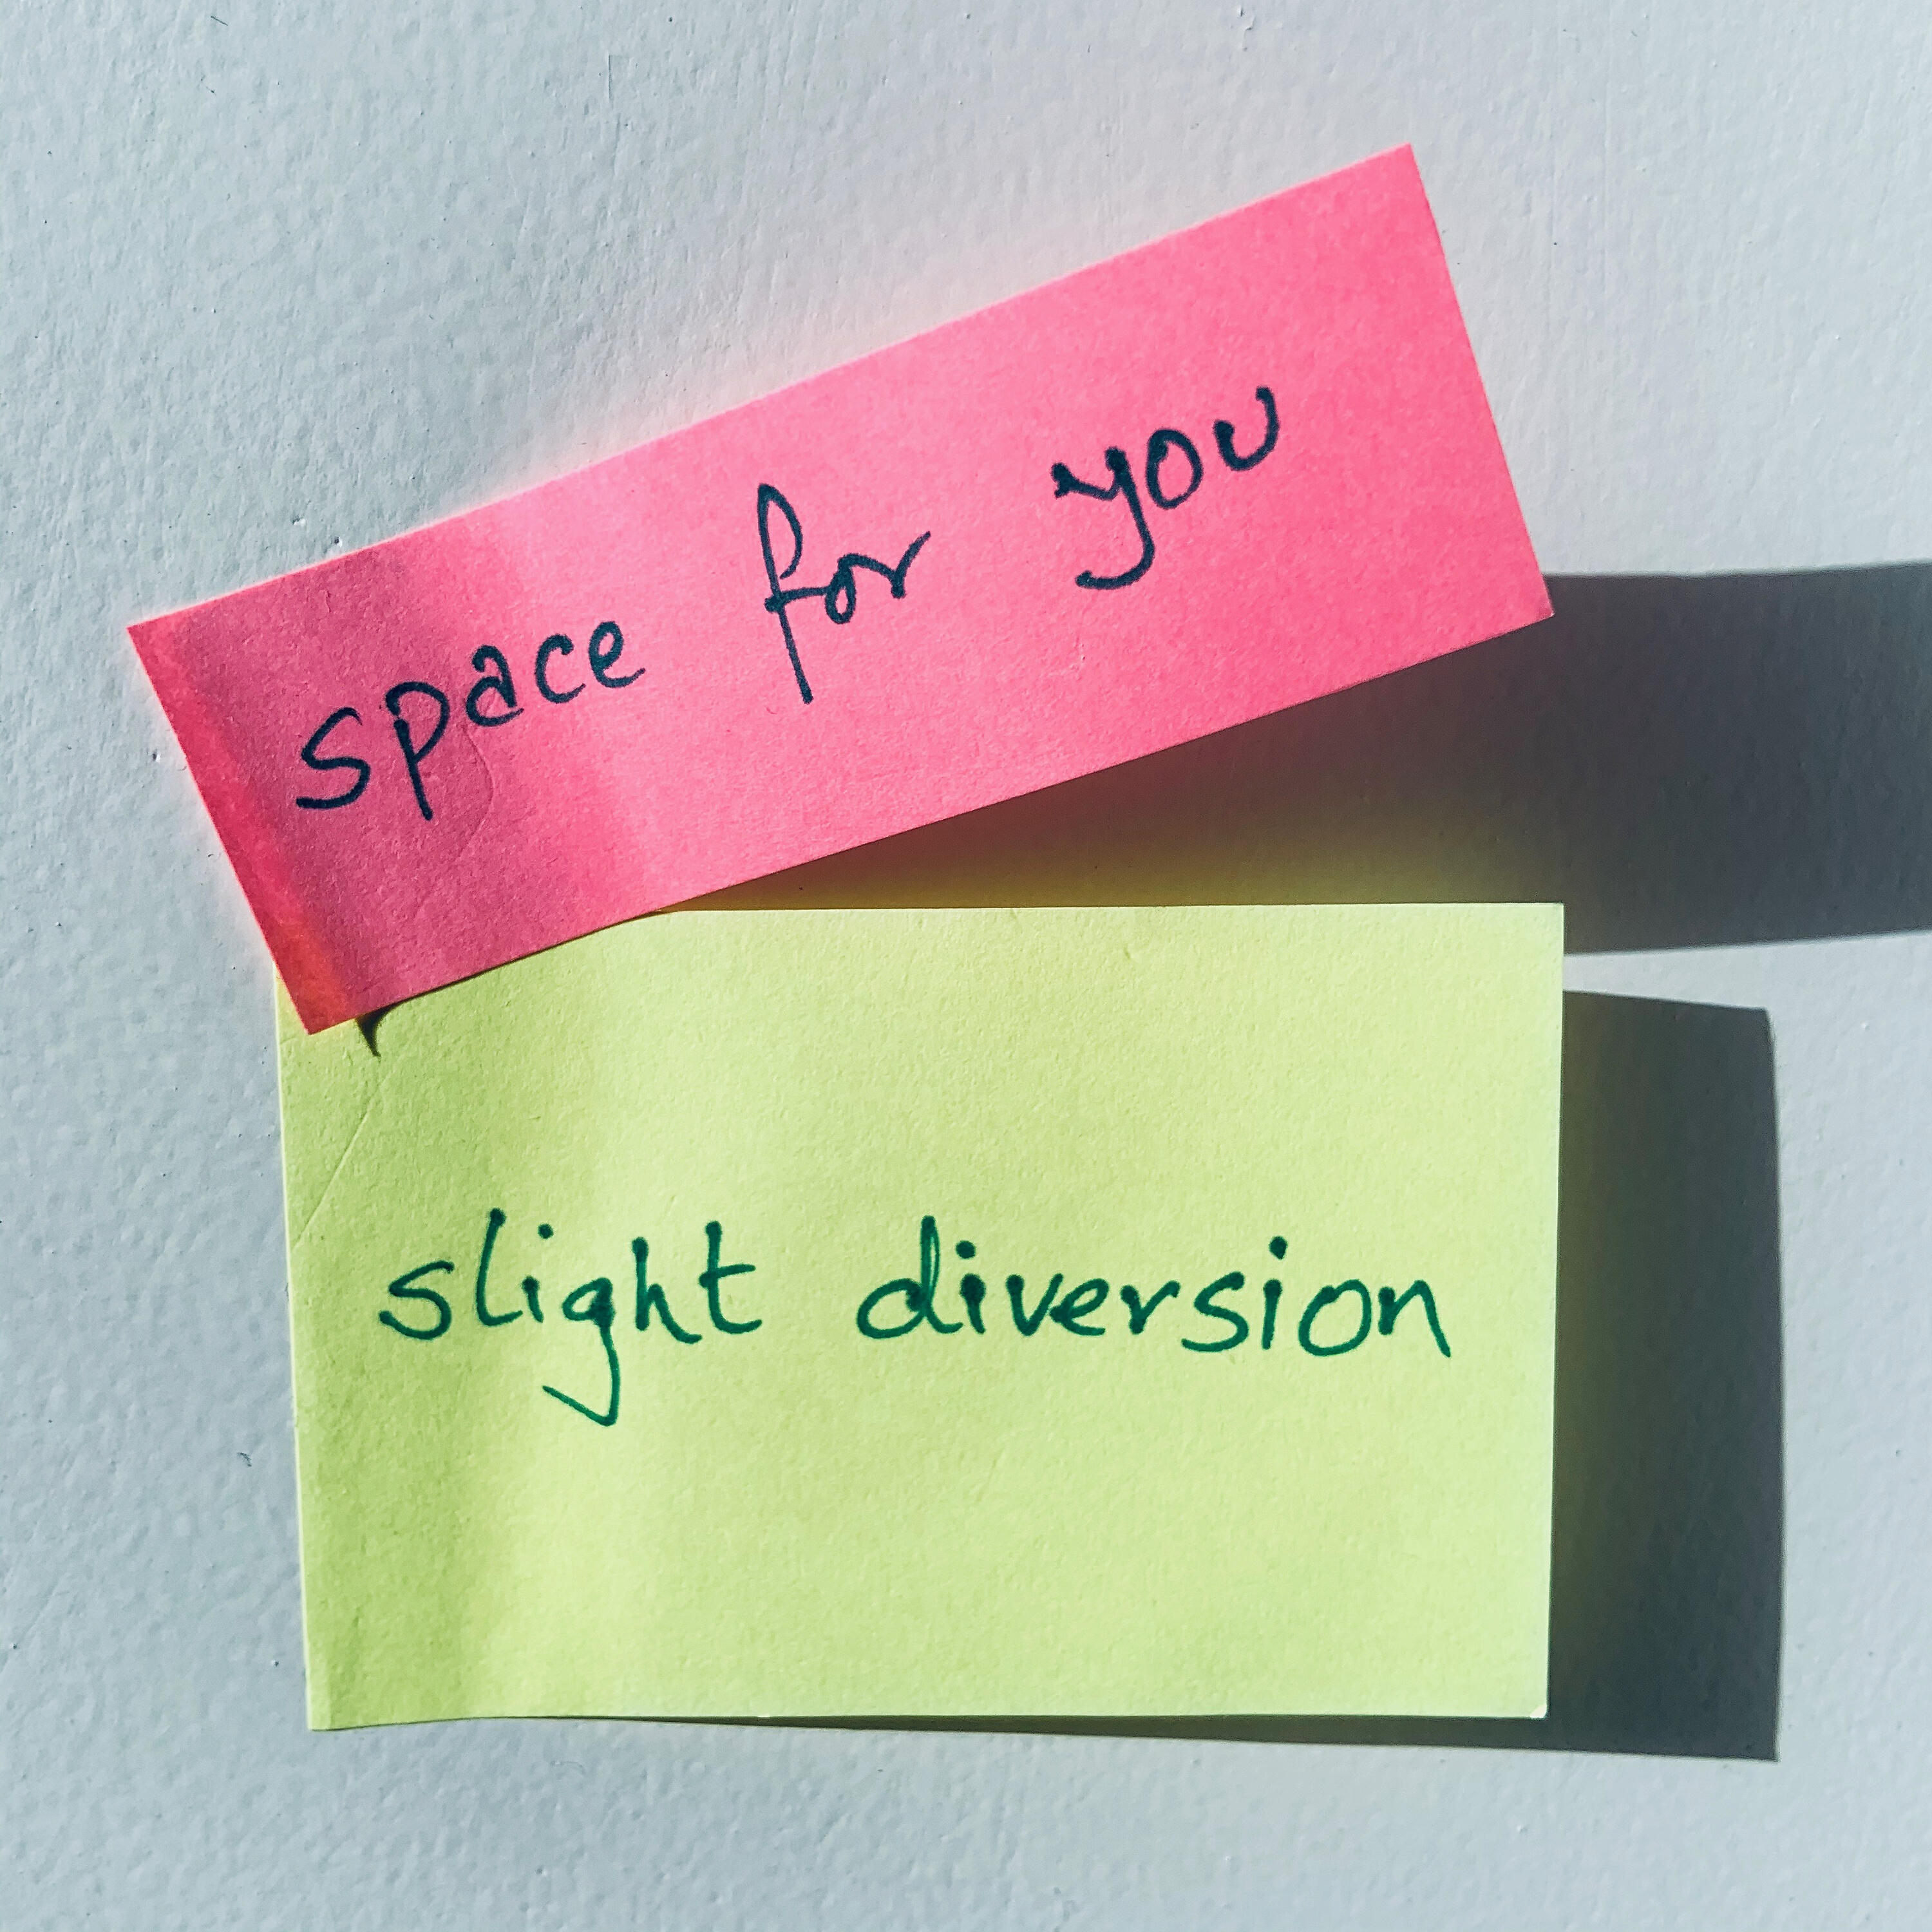 space for you
slight diversion